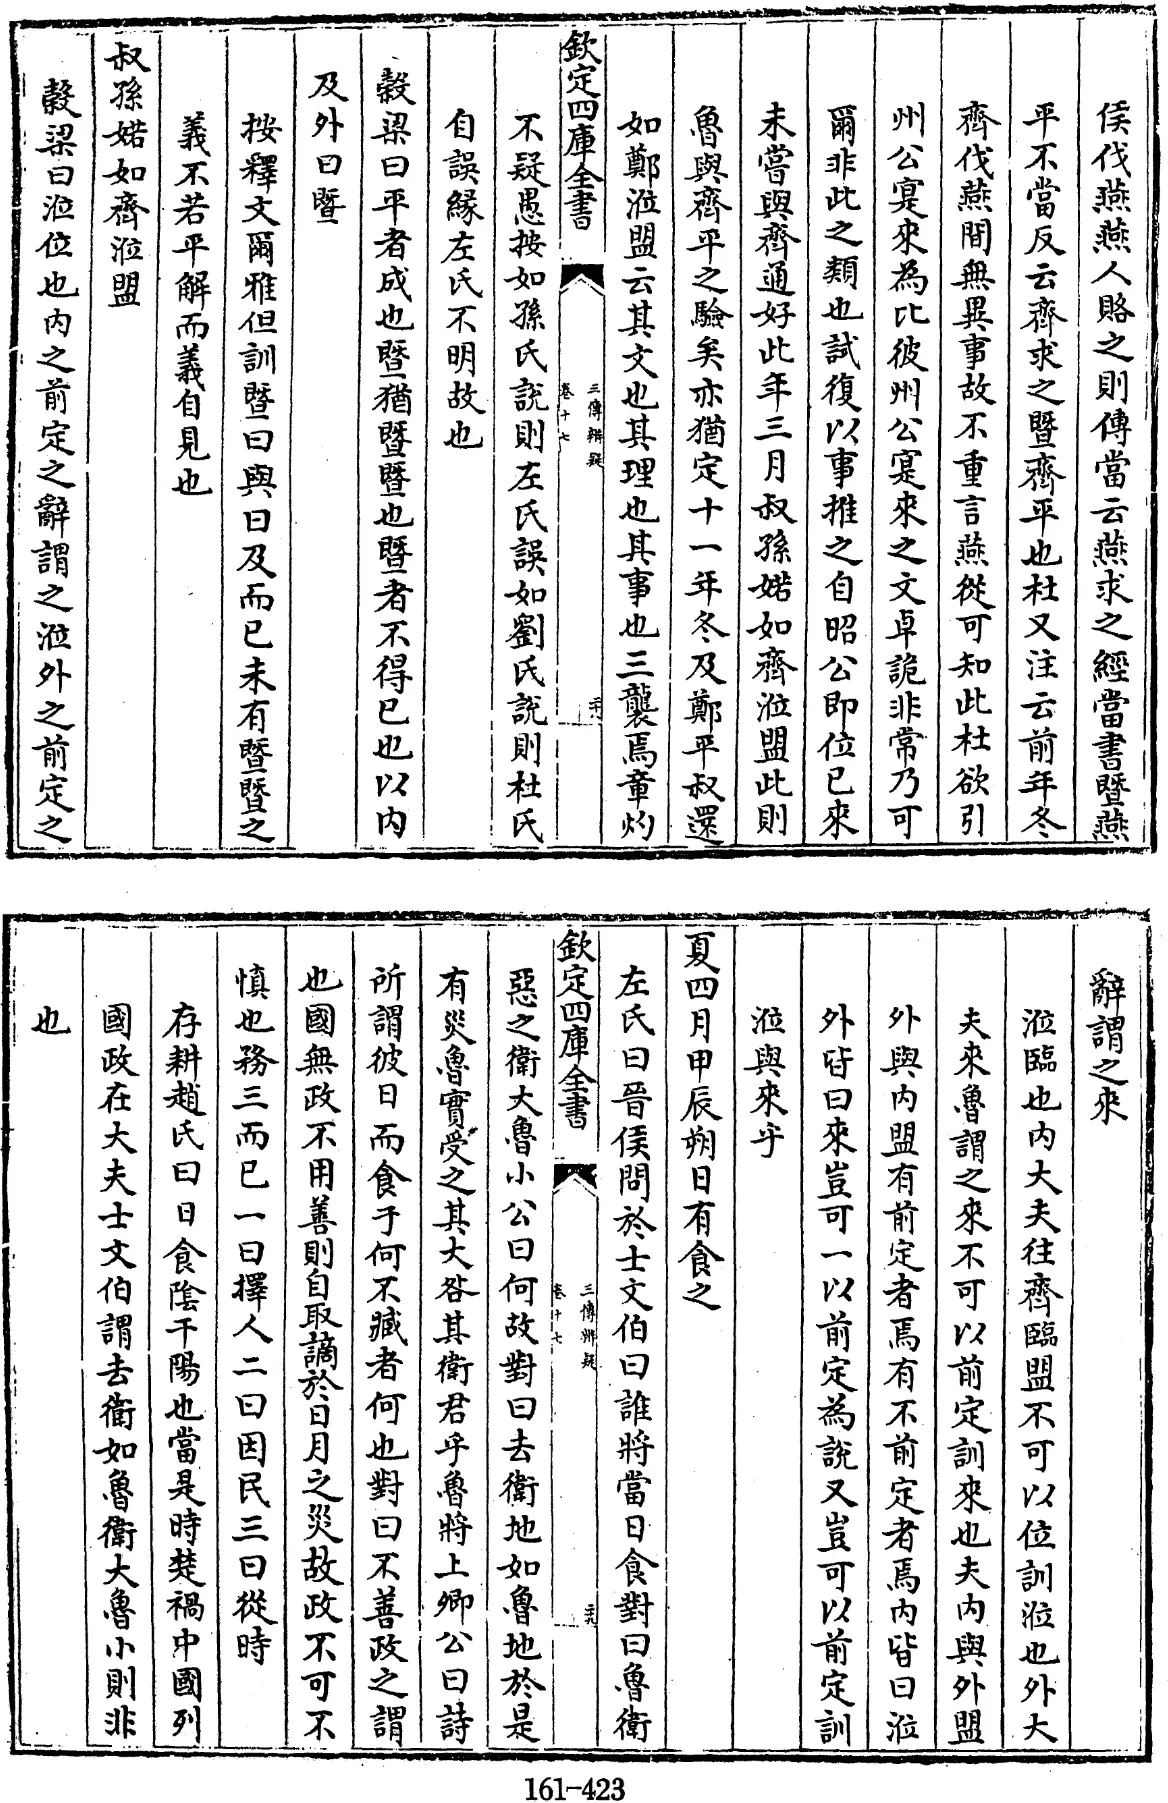 侯伐燕燕人賂之則傳當云燕求之經當書暨燕
平不當反云齊求之暨齊平也杜又注云前年冬
齊伐燕間無異事故不重言燕從可知此杜欲引
州公寔來為比彼州公寔來之文卓詭非常乃可
爾非此之類也試復以事推之自昭公即位已來
未嘗與齊通好此年三月叔孫婼如齊涖盟此則
魯與齊平之驗矣亦猶定十一年冬及鄭平叔還
如鄭涖盟云其文也其理也其事也三襲焉章灼
欽定四庫全書
三傳辨疑
卷十七
二十八
不疑愚按如孫氏說則左氏誤如劉氏說則杜氏
自誤緣左氏不明故也
穀梁曰平者成也暨猶暨暨也暨者不得已也以内
及外曰暨
按釋文爾雅但訓暨曰與曰及而已未有暨暨之
義不若平解而義自見也
叔孫婼如齊涖盟
穀梁曰涖位也内之前定之辭謂之涖外之前定之
辭謂之來
涖臨也内大夫往齊臨盟不可以位訓涖也外大
夫來魯謂之來不可以前定訓來也夫内與外盟
外與内盟有前定者焉有不前定者焉内皆曰涖
外皆曰來豈可一以前定為說又豈可以前定訓
涖與來乎
夏四月甲辰朔日有食之
左氏曰晉侯問於士文伯曰誰將當日食對曰魯衛
欽定四庫全書
三傳辨疑
卷十七
二十九
惡之衛大魯小公曰何故對曰去衛地如魯地於是
有災魯實受之其大咎其衛君乎魯將上卿公曰詩
所謂彼日而食于何不臧者何也對曰不善政之謂
也國無政不用善則自取謫於日月之災故政不可不
慎也務三而已一曰擇人二曰因民三曰從時
存耕趙氏曰日食陰干陽也當是時楚禍中國列
國政在大夫士文伯謂去衛如魯衛大魯小則非
也
161-423